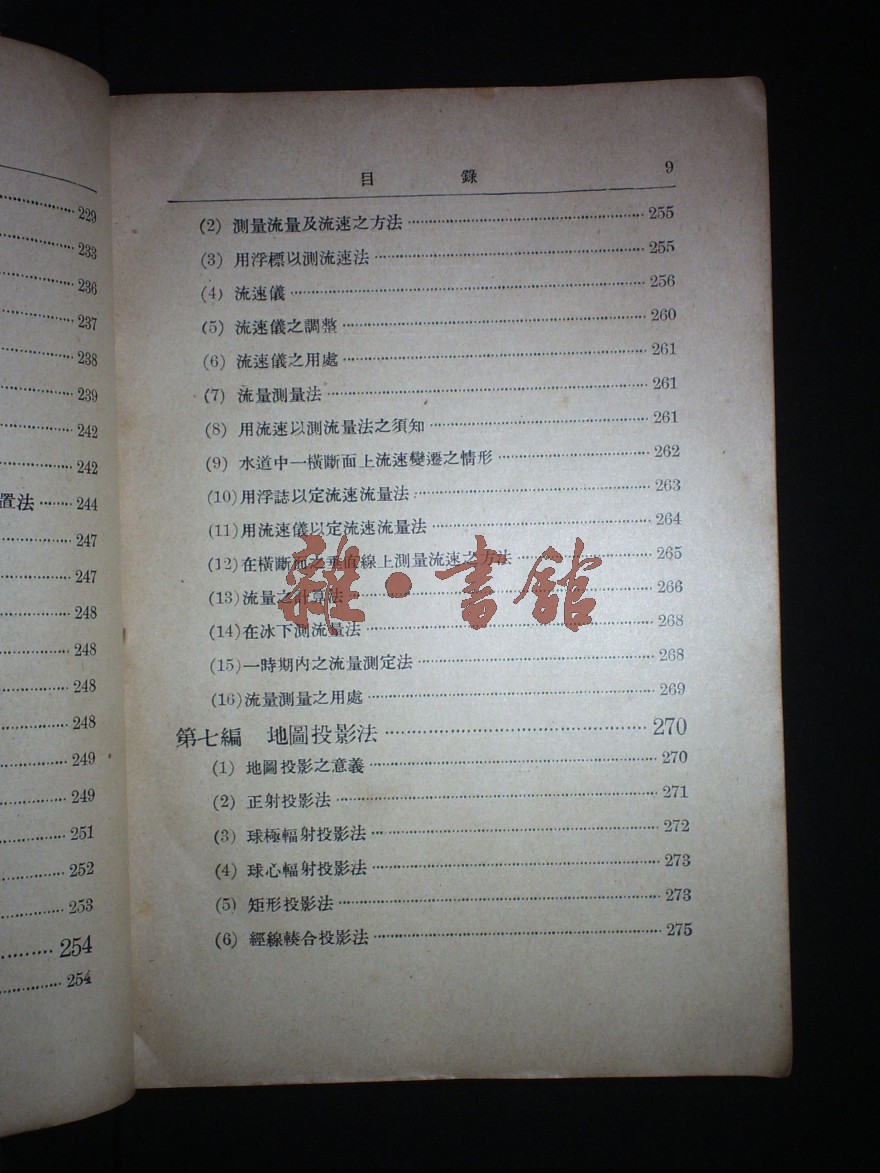 229
233
236
237
238
239
242
242
置法 244
247
247
248
248
248
248
249
249
251
252
253
254
254
目 錄 9
(2) 測量流量及流速之方法 255
(3) 用浮標以測流速法 255
(4) 流速儀 256
(5) 流速儀之調整 260
(6) 流速儀之用處 261
(7) 流量測量法 261
(8) 用流速以測流量法之須知 261
(9) 水道中一橫斷面上流速變遷之情形 262
(10) 用浮誌以定流速流量法 263
(11) 用流速儀以定流速流量法 264
(12) 在橫斷面之垂直線上測量流速之方法 265
(13) 流量之計算法 266
(14) 在冰下測流量法 268
(15) 一時期內之流量測定法 268
(16) 流量測量之用處 269
第七編 地圖投影法 270
(1) 地圖投影之意義 270
(2) 正射投影法 271
(3) 球極輻射投影法 272
(4) 球心輻射投影法 273
(5) 矩形投影法 273
(6) 經線輳合投影法 275
雜·書館